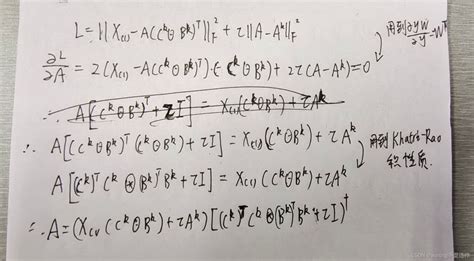 L = ||X₍₁₎ - A(Cᵏ⊙Bᵏ)ᵀ||²_F + τ||A - Aᵏ||²_F
∂L/∂A = 2(X₍₁₎ - A(Cᵏ⊙Bᵏ)ᵀ)·(-Cᵏ⊙Bᵏ) + 2τ(A-Aᵏ) = 0
用到 ∂yW/∂y = Wᵀ
∴ A[(Cᵏ⊙Bᵏ)ᵀ + τI] = X₍₁₎(Cᵏ⊙Bᵏ) + τAᵏ
∴ A[(Cᵏ⊙Bᵏ)ᵀ(Cᵏ⊙Bᵏ) + τI] = X₍₁₎(Cᵏ⊙Bᵏ) + τAᵏ
用到 Khatri-Rao
积性质.
A[(Cᵏ)ᵀCᵏ ⊛ (Bᵏ)ᵀBᵏ + τI] = X₍₁₎(Cᵏ⊙Bᵏ) + τAᵏ
∴ A = (X₍₁₎(Cᵏ⊙Bᵏ) + τAᵏ)[(Cᵏ)ᵀCᵏ ⊛ (Bᵏ)ᵀBᵏ + τI]†